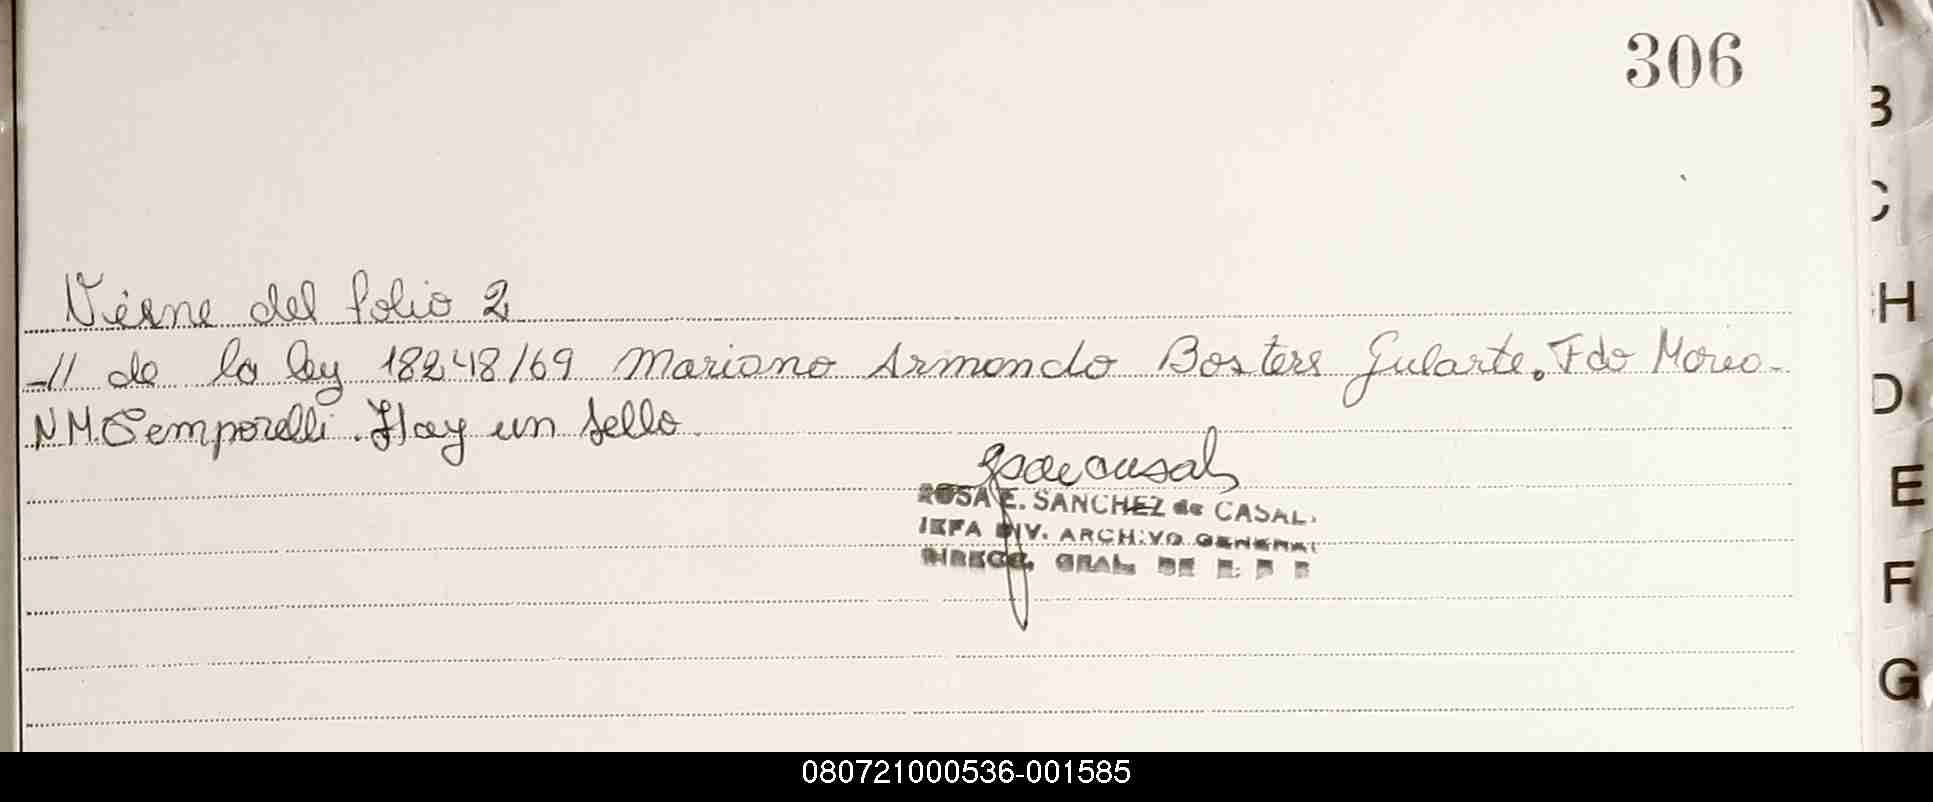 306
B
C
H
D
E
F
G
Viene del folio 2
-// de la ley 18248/69 Mariano Armando Bosters Gularte. Fdo Mario-
N.M. Semporelli. Hay un sello.
ROSA E. SANCHEZ de CASAL
JEFA DIV. ARCHIVO GENERAL
DIRECC. GRAL. DE
080721000536-001585